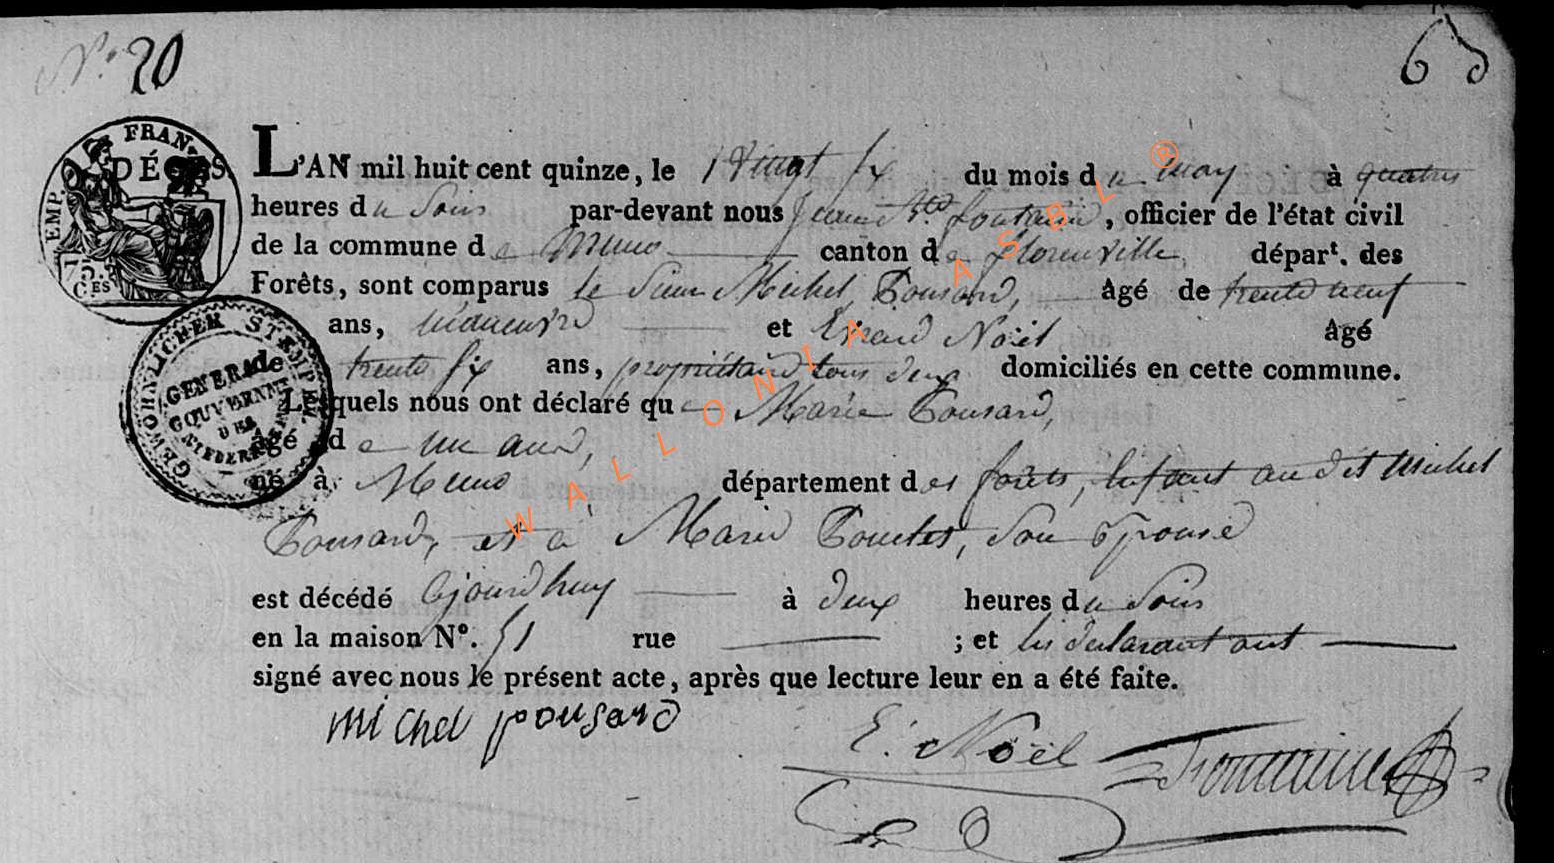 N.° 20
63
FRAN
DÉCÈS
EMP.
75.
CES
L'AN mil huit cent quinze, le vingt six du mois du may à quatres
heures du Soir par-devant nous fontaine, officier de l'état civil
de la commune de Muno canton de florenville dépar<sup>t</sup>. des
Forêts, sont comparus le Sieur Michel Pousard, âgé de trente neuf
ans, manœuvre et Evrard Noël âgé
de trente six ans, propriétaire tous deux domiciliés en cette commune.
Lesquels nous ont déclaré que Marie Pousard,
âgé de un ans,
né à Muno département des forêts, Enfant au dit Michel
Pousard, et a Marie son Epouse
est décédé ajourdhuy à deux heures du Soir
en la maison N°. 51 rue ; et les declarant ont
signé avec nous le présent acte, après que lecture leur en a été faite.
michel pousard
E. Noël
Fontaine
GEWOHNLICHER STEMPEL
GENERAL
GOUVERNEMT
DES
NIEDERRHEIN
WALLONIA ASBL ®